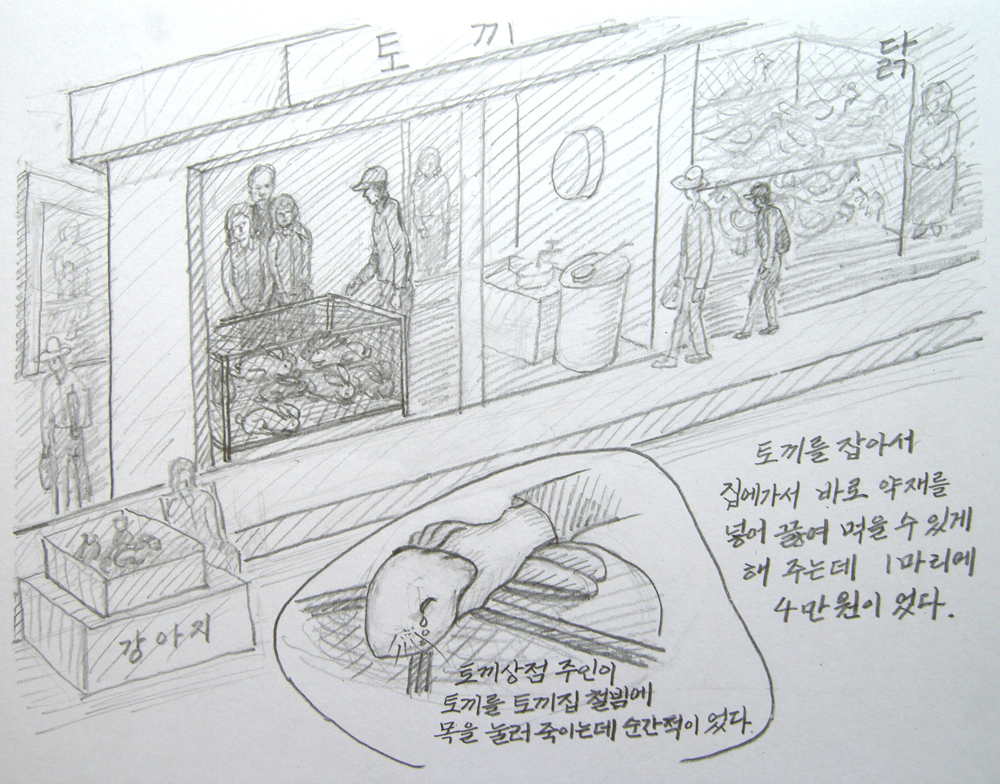 토끼
닭
토끼를 잡아서
집에가서 바로 약재를
넣어 끓여 먹을 수 있게
해 주는데 1마리에
4만원이 었다.
강아지
토끼상점 주인이
토끼를 토끼집 철빔에
목을 눌러 죽이는데 순간적이 었다.